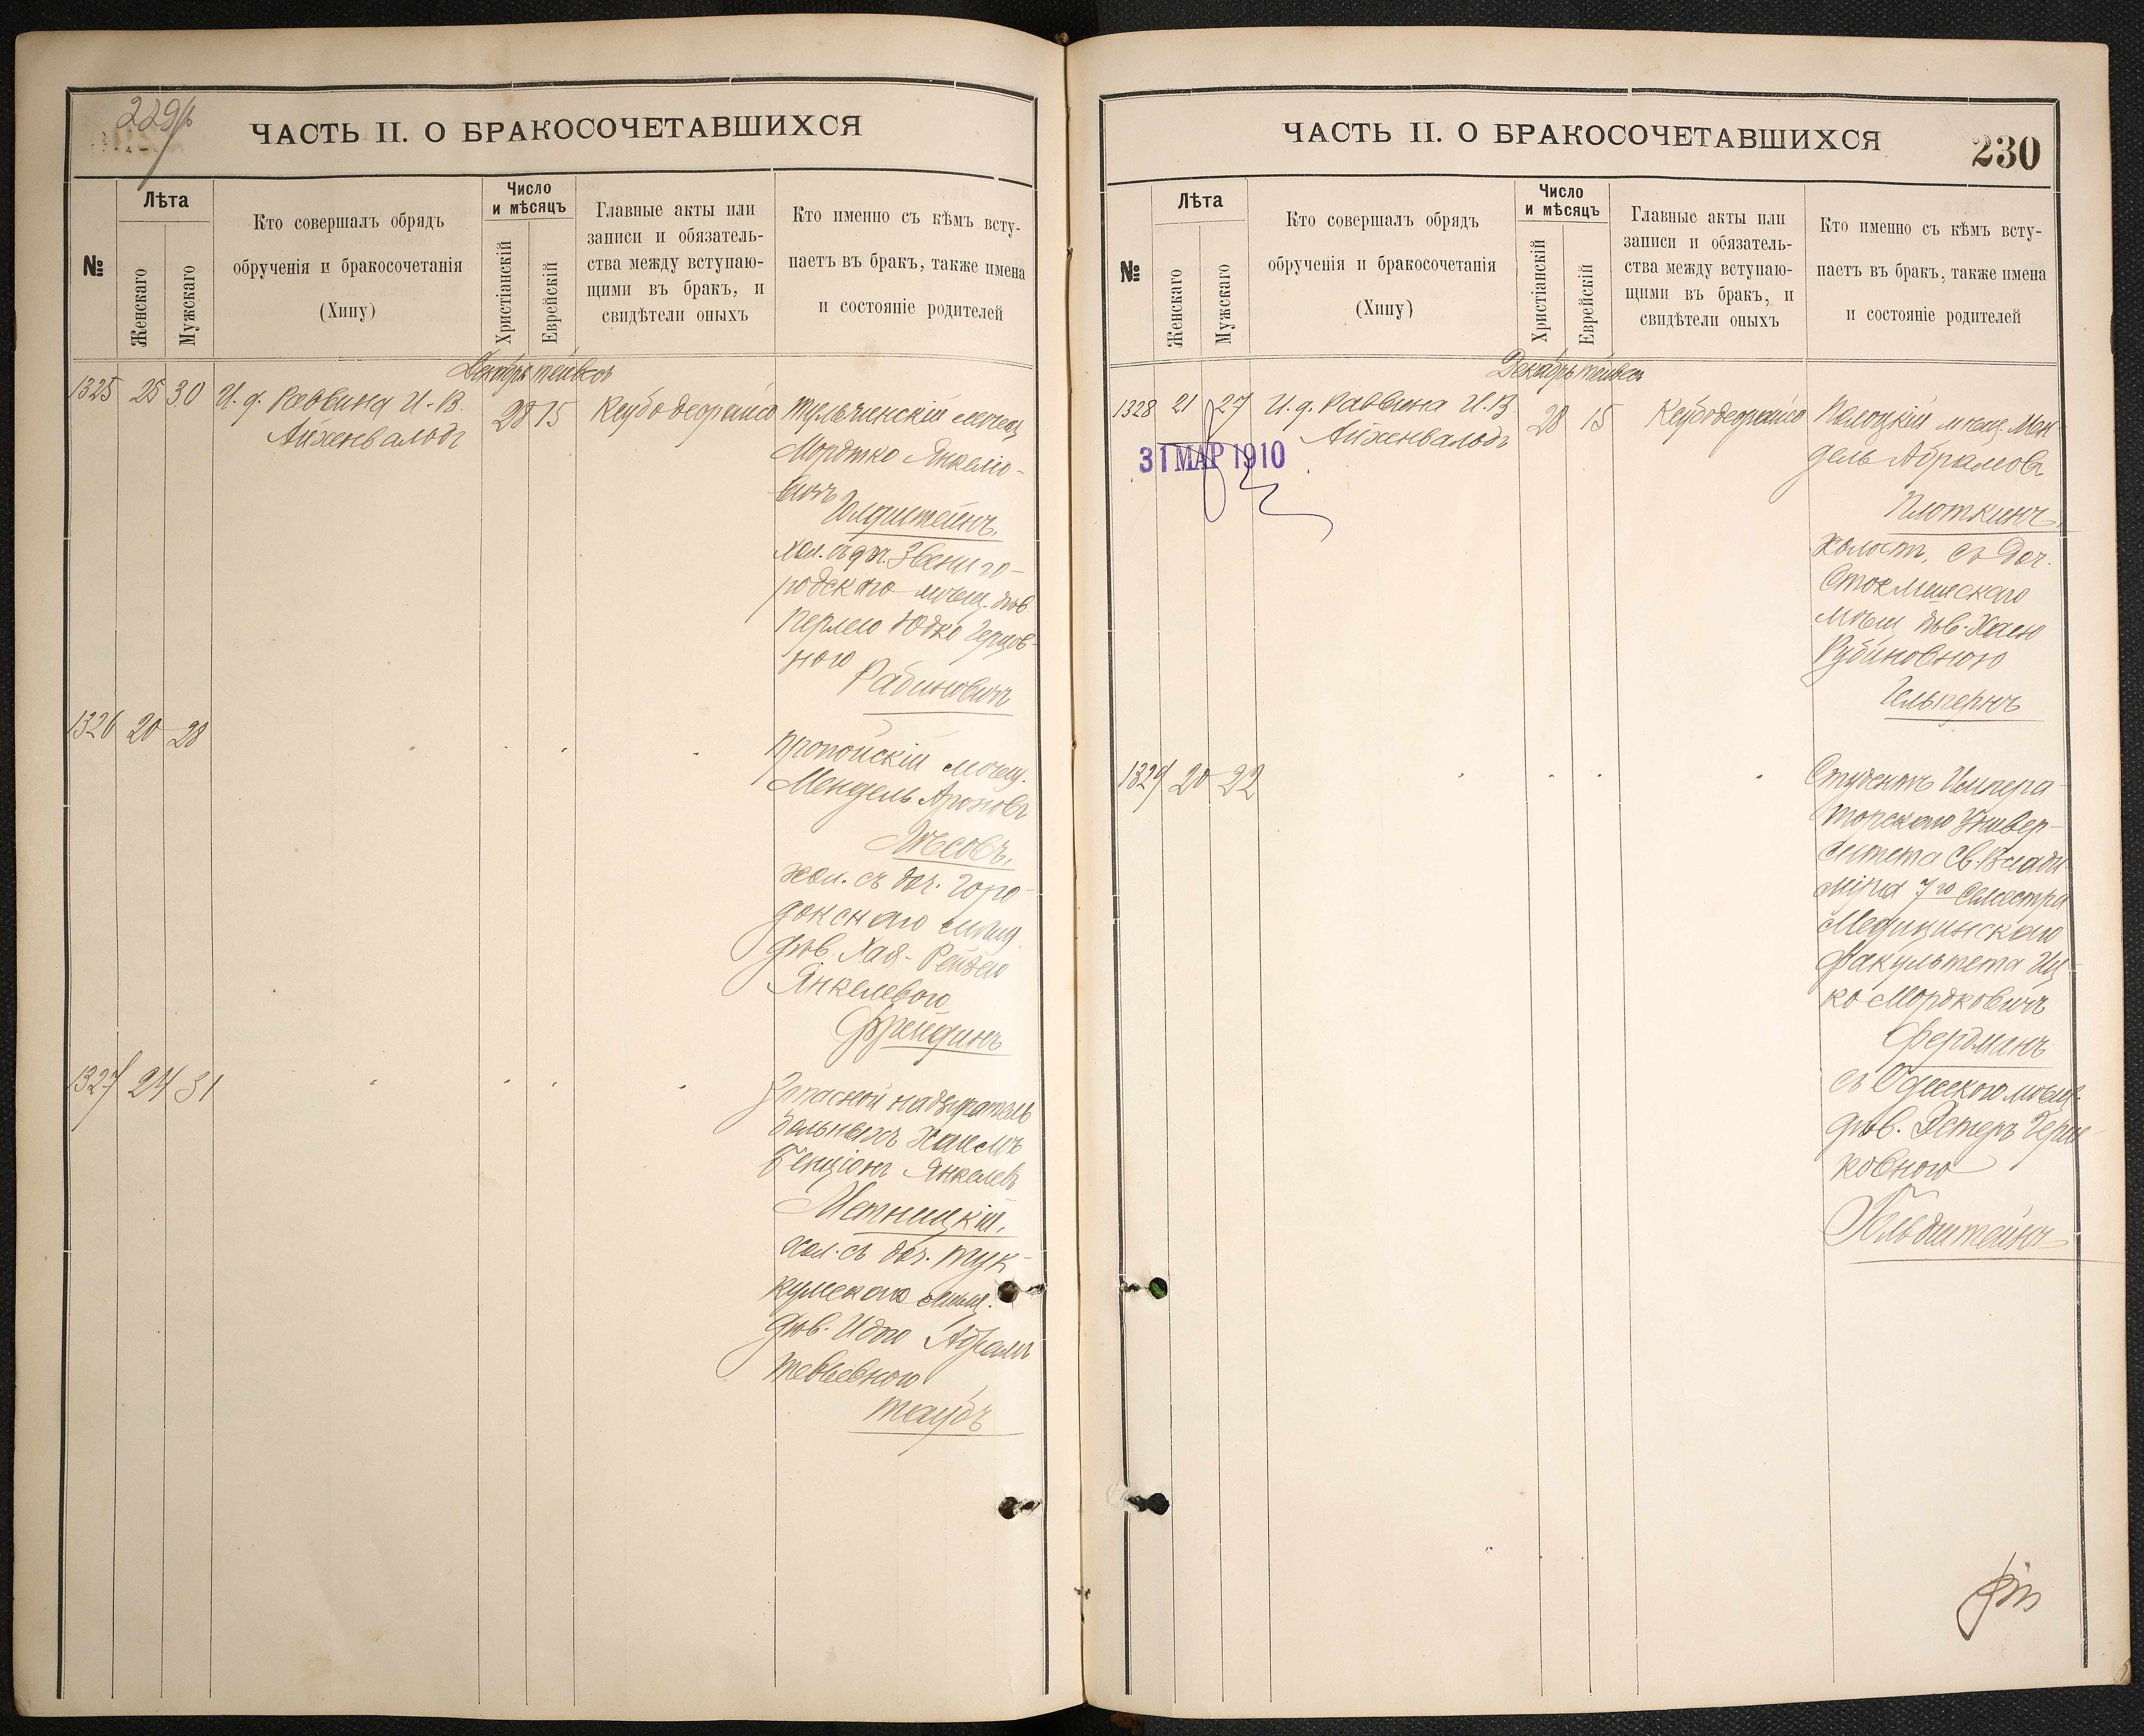 229 об
ЧАСТЬ II. О БРАКОСОЧЕТАВШИХСЯ
№
Лѣта
Женскаго
Мужскаго
Кто совершалъ обрядъ
обрученія и бракосочетанія
(Хипу)
Число
и мѣсяцъ
Христіанскій
Еврейскій
Главные акты или
записи и обязатель-
ства между вступаю-
щими въ бракъ, и
свидѣтели оныхъ
Кто именно съ кѣмъ всту-
паетъ въ бракъ, также имена
и состояніе родителей
Декабрь тейвес
1325 25 30 И. д. Раввина И. В.
Айхенвальдъ
28 15
Тульчинскій мѣщ
Мордтко Янкелio-
вичъ
Гольдштейнъ,
хол. съ доч. Звениго-
родскаго мѣщ. дѣв.
Перлею Юдко Герцов-
ною
Рабиновичъ
1326 20 28
Пропойскій мѣщ.
Мендель Ароновъ
Лѣсовъ,
хол. съ доч. Горо-
докскаго мѣщ.
дѣв. Хая-Рейзею
Янкелевою
Фрейдинъ
1327 24 31
Запасной надзиратель
больныхъ Хаимъ
Бенціонъ Янкелевъ
Метницкій,
хол. съ доч. Тук-
кумскаго мѣщ.
дѣв. Идою Абрамъ
Тевьевною
Таубъ
ЧАСТЬ II. О БРАКОСОЧЕТАВШИХСЯ
230
№
Лѣта
Женскаго
Мужскаго
Кто совершалъ обрядъ
обрученія и бракосочетанія
(Хипу)
Число
и мѣсяцъ
Христіанскій
Еврейскій
Главные акты или
записи и обязатель-
ства между вступаю-
щими въ бракъ, и
свидѣтели оныхъ
Кто именно съ кѣмъ всту-
паетъ въ бракъ, также имена
и состояніе родителей
Декабрь тейвес
1328 21 27 И. д. Раввина И. В.
Айхенвальдъ
28 15
31 МАР 1910
Полоцкій мѣщ. Мен-
дель Абрамовъ
Плоткинъ,
холост, съ доч.
мѣщ. дѣв. Хаею
Рубиновною
Гельперинъ
1329 20 22
Студентъ Импера-
торскаго Универ-
ситета Св. Влади
міра 7го семестра
Медицинскаго
факультета Иц-
ко Мордковичъ
Фердманъ
съ Одесскою мѣщ.
дѣв. Эстеръ Герш-
ковною
Гольдштейнъ